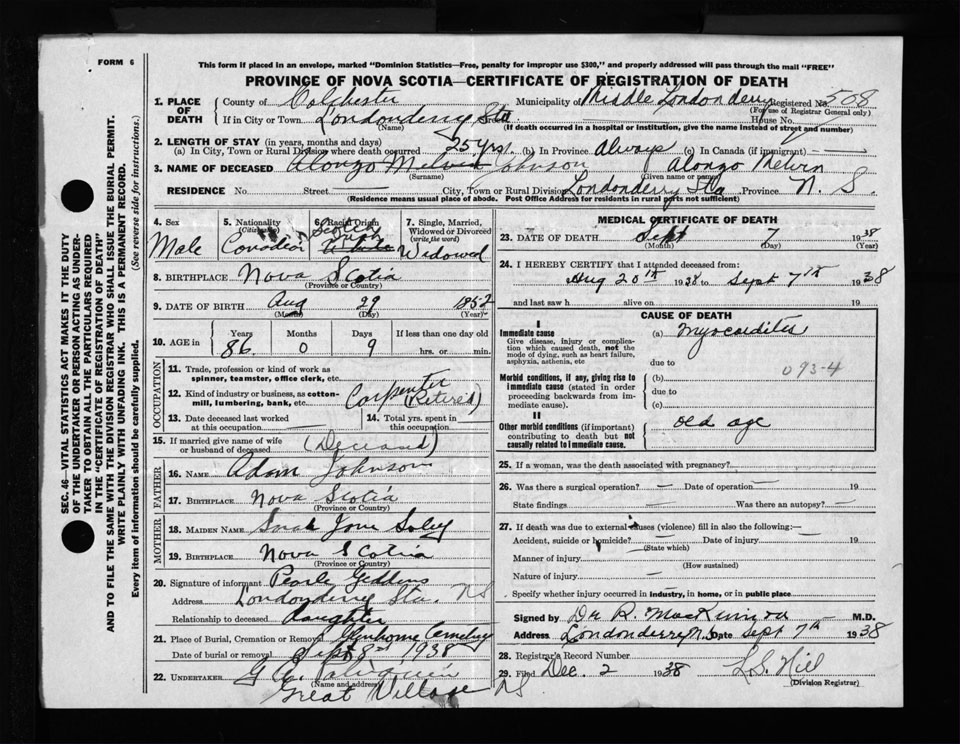 FORM 6
This form if placed in an envelope, marked "Dominion Statistics—Free, penalty for improper use $300," and properly addressed will pass through the mail "FREE"
PROVINCE OF NOVA SCOTIA—CERTIFICATE OF REGISTRATION OF DEATH
1. PLACE OF DEATH
County of Colchester Municipality of Middle Londonderry Registered No. 508
(For use of Registrar General only)
If in City or Town Londonderry Sta Street House No.
(Name) (If death occurred in a hospital or institution, give the name instead of street and number)
2. LENGTH OF STAY (in years, months and days)
(a) In City, Town or Rural Division where death occurred 25 yrs. (b) In Province Always (c) In Canada (if immigrant) —
3. NAME OF DECEASED Alonzo Melvin Johnson Alonzo Melvin
(Surname) (Given name or names)
RESIDENCE No. Street — City, Town or Rural Division Londonderry Sta Province N. S.
(Residence means usual place of abode. Post Office Address for residents in rural parts not sufficient)
4. Sex Male
5. Nationality (Citizenship) Canadian
6. Racial Origin Scotia
7. Single, Married, Widowed or Divorced (write the word) Widowed
8. BIRTHPLACE Nova Scotia
(Province or Country)
9. DATE OF BIRTH Aug 29 1852
(Month) (Day) (Year)
10. AGE in Years Months Days If less than one day old
86. 0 9 hrs. or min.
OCCUPATION
11. Trade, profession or kind of work as spinner, teamster, office clerk, etc.
12. Kind of industry or business, as cotton-mill, lumbering, bank, etc. Carpenter (Retired)
13. Date deceased last worked at this occupation
14. Total yrs. spent in this occupation
15. If married give name of wife or husband of deceased (Deceased)
FATHER
16. NAME Adam Johnson
17. BIRTHPLACE Nova Scotia
(Province or Country)
MOTHER
18. MAIDEN NAME Sarah Jane
19. BIRTHPLACE Nova Scotia
(Province or Country)
20. Signature of informant Pearle Geddens
Address Londonderry Sta. NS
Relationship to deceased daughter
21. Place of Burial, Cremation or Removal Glenholme Cemetery
Date of burial or removal Sept 8 1938
22. UNDERTAKER
(Name and address)
Great Village NS
MEDICAL CERTIFICATE OF DEATH
23. DATE OF DEATH Sept 7 1938
(Month) (Day) (Year)
24. I HEREBY CERTIFY that I attended deceased from:
Aug 20th 1938 to Sept 7th 1938
and last saw h alive on 19
CAUSE OF DEATH
I
Immediate cause (a) Myocarditis
Give disease, injury or complication which caused death, not the mode of dying, such as heart failure, asphyxia, asthenia, etc
due to
093-4
Morbid conditions, if any, giving rise to immediate cause (stated in order proceeding backwards from immediate cause).
(b)
due to
(c)
II
Other morbid conditions (if important) contributing to death but not causally related to immediate cause. old age
25. If a woman, was the death associated with pregnancy?
26. Was there a surgical operation? — Date of operation — 19
State findings — Was there an autopsy? —
27. If death was due to external causes (violence) fill in also the following:—
Accident, suicide or homicide? — Date of injury — 19
(State which)
Manner of injury —
(How sustained)
Nature of injury —
Specify whether injury occurred in industry, in home, or in public place
Signed by Dr R. MacKinnon M.D.
Address Londonderry N.S. Date Sept 7th 1938
28. Registrar's Record Number
29. Filed Dec. 2 1938 L.S. Hill
(Division Registrar)
SEC. 46—VITAL STATISTICS ACT MAKES IT THE DUTY
OF THE UNDERTAKER OR PERSON ACTING AS UNDER-
TAKER TO OBTAIN ALL THE PARTICULARS REQUIRED
IN THE "CERTIFICATE OF REGISTRATION OF DEATH"
AND TO FILE THE SAME WITH THE DIVISION REGISTRAR WHO SHALL ISSUE THE BURIAL PERMIT.
WRITE PLAINLY WITH UNFADING INK. THIS IS A PERMANENT RECORD.
Every item of information should be carefully supplied. (See reverse side for instructions.)